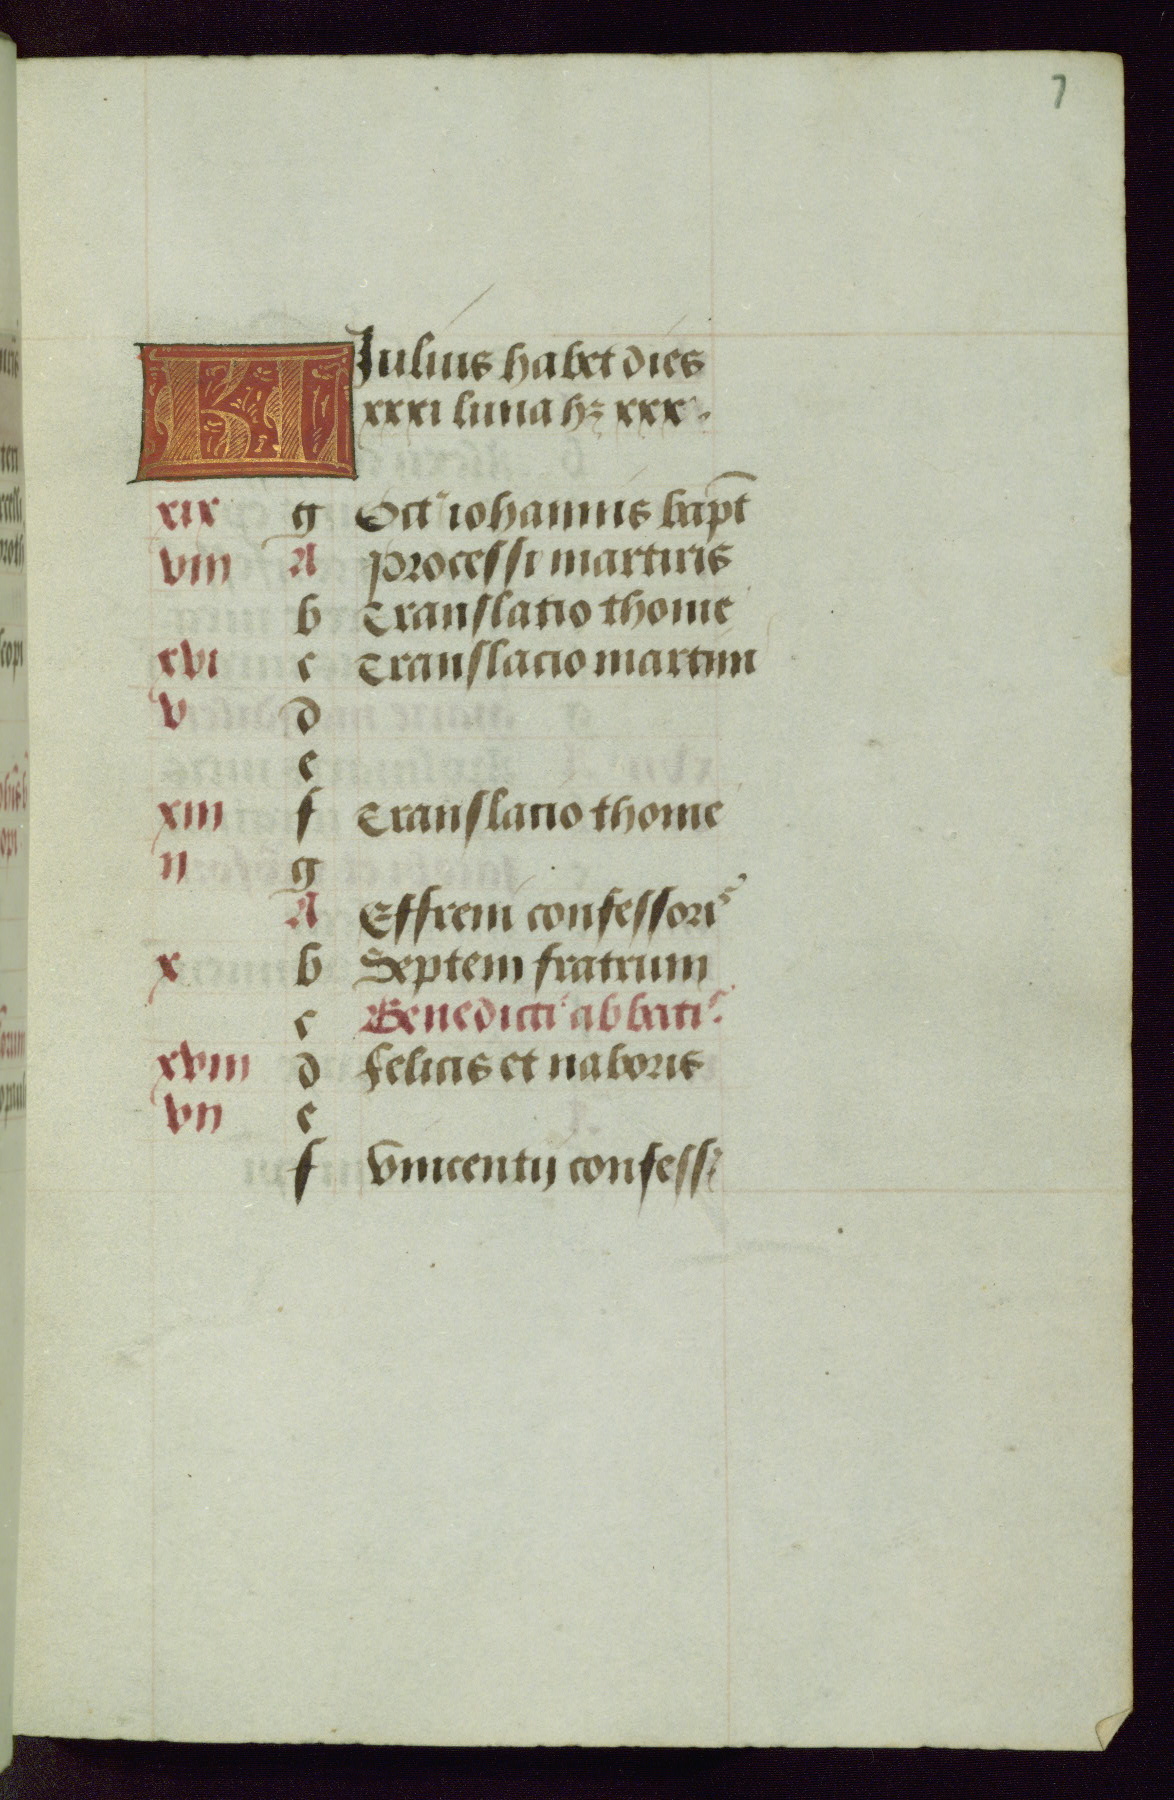 7
Kl Julius habet dies
xxxi luna hꝫ xxx.
xix g Oct' iohannis bapt̄
viii A Processi martiris
b Translatio thome
xvi c Translacio martini
v d
e
xiii f Translatio thome
ii g
A Effrem confessoris
x b Septem fratrum
c Benedicti abbatis
xviii d felicis et naboris
vii e
f Vincentij confess